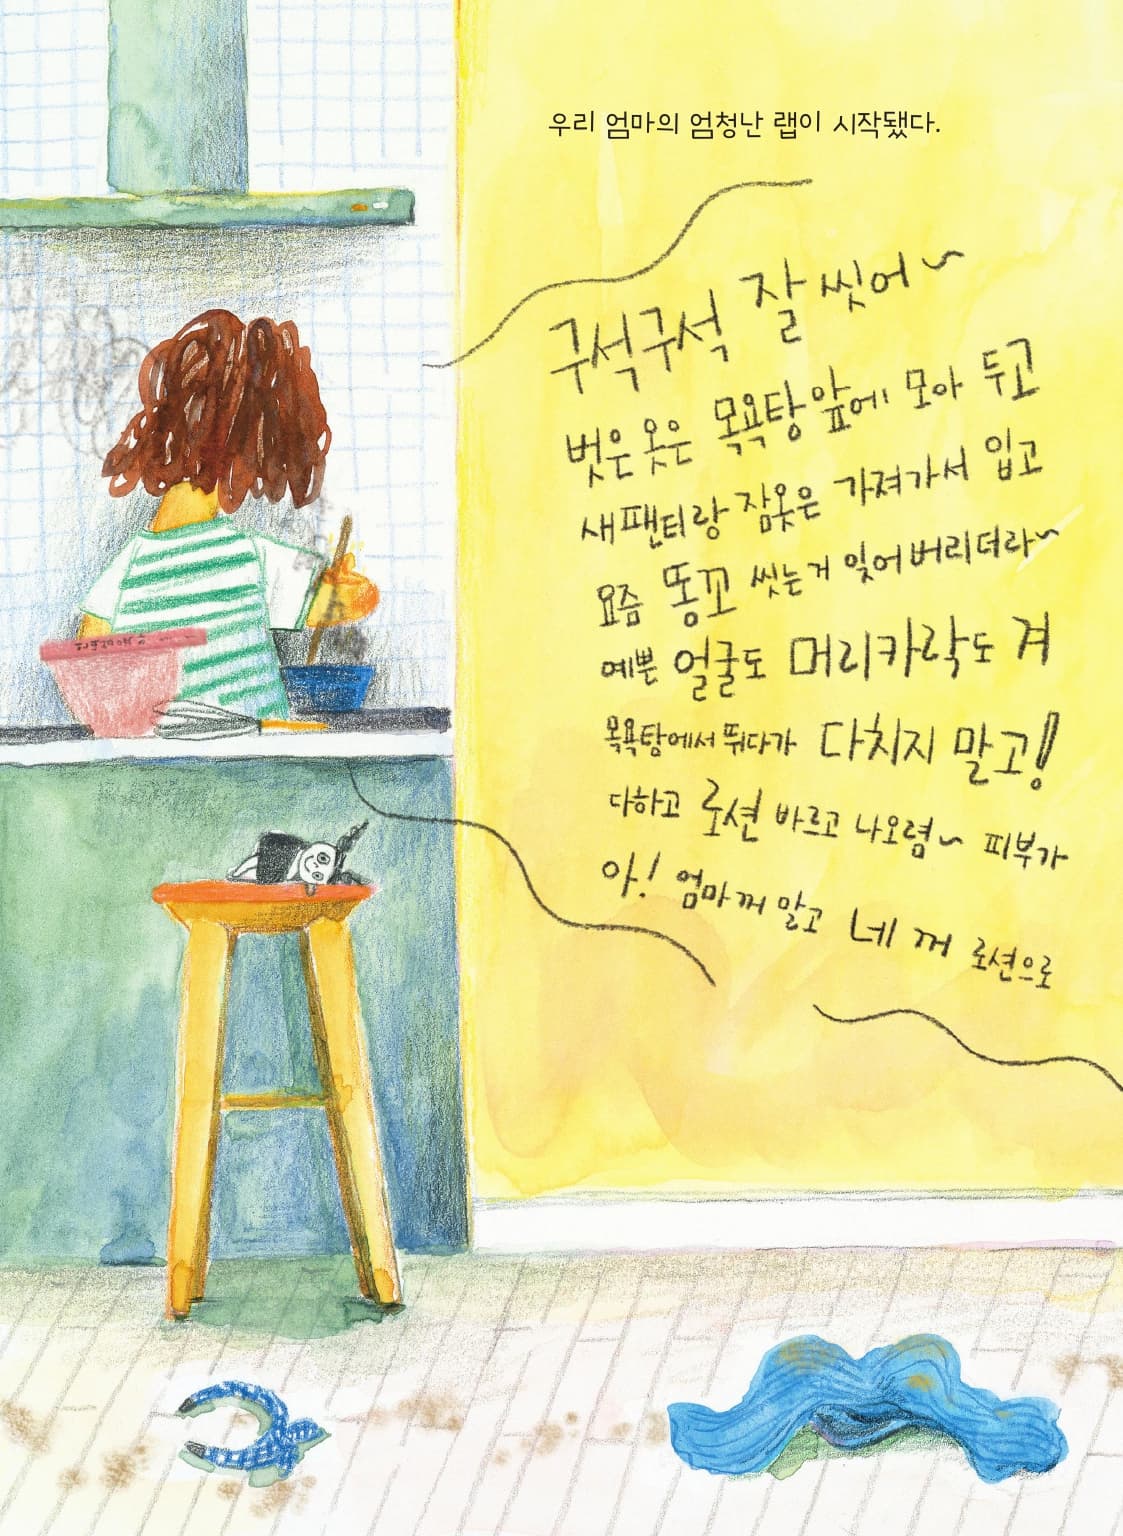 우리 엄마의 엄청난 랩이 시작됐다.
구석구석 잘 씻어~
벗은 옷은 목욕탕 앞에 모아 두고
새 팬티랑 잠옷은 가져가서 입고
요즘 똥꼬 씻는거 잊어버리더라~
예쁜 얼굴도 머리카락도 겨
목욕탕에서 뛰다가 다치지 말고!
다하고 로션 바르고 나오렴~ 피부가
아! 엄마꺼 말고 네 꺼 로션으로